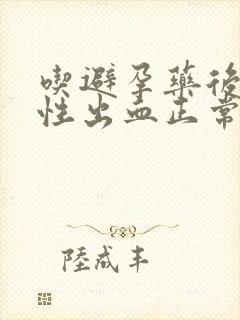 喫避孕藥後
性出血正常
陸成丰